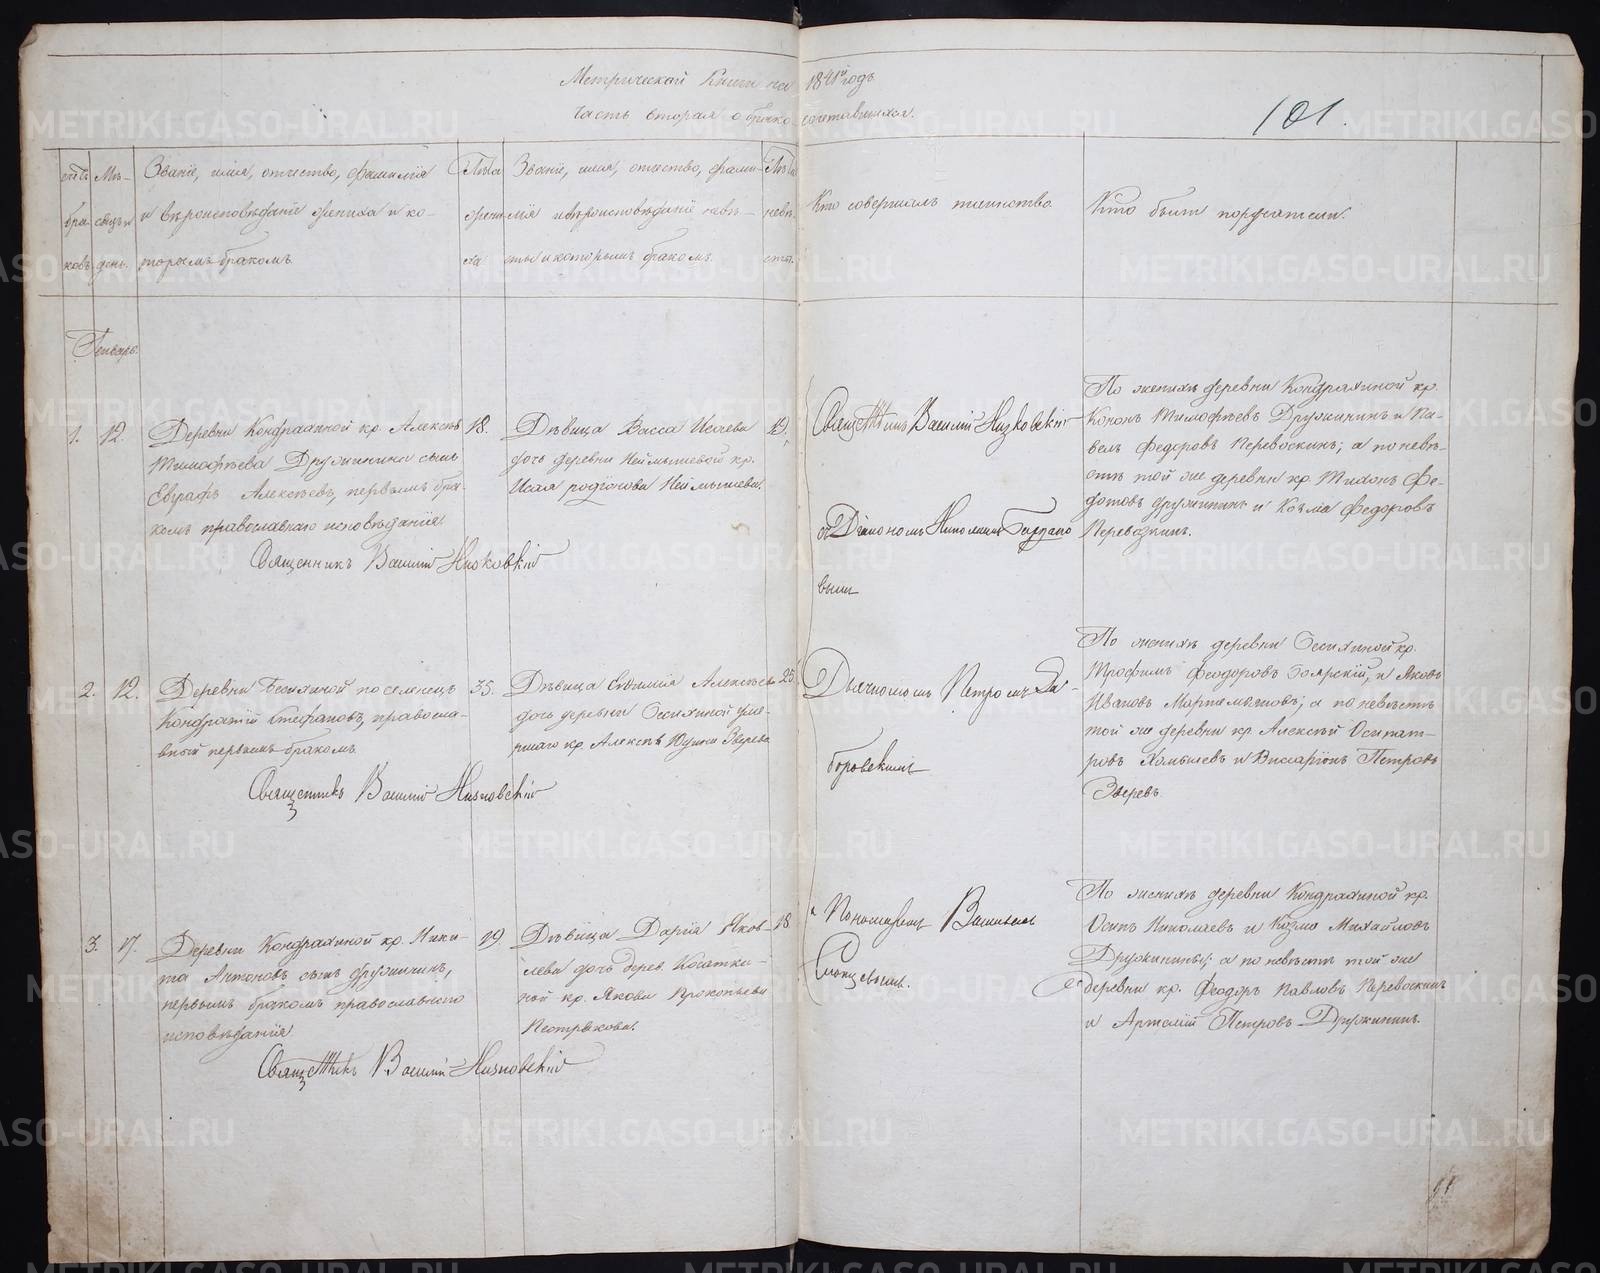 Метрической Книги на 1841й годъ
Часть вторая о бракосочетавшихся.
101.
счетъ браковъ
Мѣсяцъ и день.
Званіе, имя, отчество, фамилія
и вѣроисповѣданіе жениха и ко-
торымъ бракомъ.
Лѣта жениха
Званіе, имя, отчество, фами-
лія и вѣроисповѣданіе невѣ-
сты и которымъ бракомъ.
Лѣта невѣсты.
Кто совершалъ таинство
Кто были поручатели.
Генварь
1. 12.
Деревни Кондрахиной кр. Алексѣя
Тимофѣева Дружинина сынъ
Евграфъ Алексѣевъ, первымъ бра-
комъ православнаго исповѣданія
18.
Дѣвица Васса Исаева
дочь деревни Неймышевой кр.
Исая родіонова Неймышева.
19.
Священникъ Василій
Священникомъ Василій
и Діакономъ Николаемъ
вымъ
По женихѣ деревни Кондрахиной кр.
Кононъ Тимофѣевъ Дружининъ и Па-
велъ Федоровъ Перевоскинъ; а по невѣ-
стѣ той же деревни кр. Тихонъ Фе-
дотовъ дружининъ и Козма Федоровъ
Перевозкинъ.
2. 12.
Деревни поселенецъ
Кондратій Стефановъ, правосла-
вный первымъ бракомъ
35.
Дѣвица Евѳимія Алексѣева
дочь деревни уме-
ршаго кр. Алексѣя Юдина Зверева
25.
Священникъ Василій
Дьячкомъ Петромъ
боровскимъ
По женихѣ деревни кр.
Трофимъ Феодоровъ Боярскій, и Яковъ
Ивановъ Мартемьяновъ; а по невѣстѣ
той же деревни кр. Алексѣй Осипат-
ровъ и Виссаріонъ Петровъ
Зверевъ
3. 17.
Деревни Кондрахиной кр. Ники-
та Антоновъ сынъ дружининъ,
первымъ бракомъ православнаго
исповѣданія
19
Дѣвица Дарія Яков-
лева дочь дерев.
ной кр. Якова Прокопьева
Пестрякова.
18.
Священникъ Василій
и Пономаремъ Васильемъ
По женихѣ деревни Кондрахиной кр.
Осипъ Николаевъ и Козма Михайловъ
Дружинины; а по невѣстѣ той же
деревни кр. Феодоръ Павловъ Перевоскинъ
и Артемій Петровъ Дружининъ.
METRIKI.GASO-URAL.RU